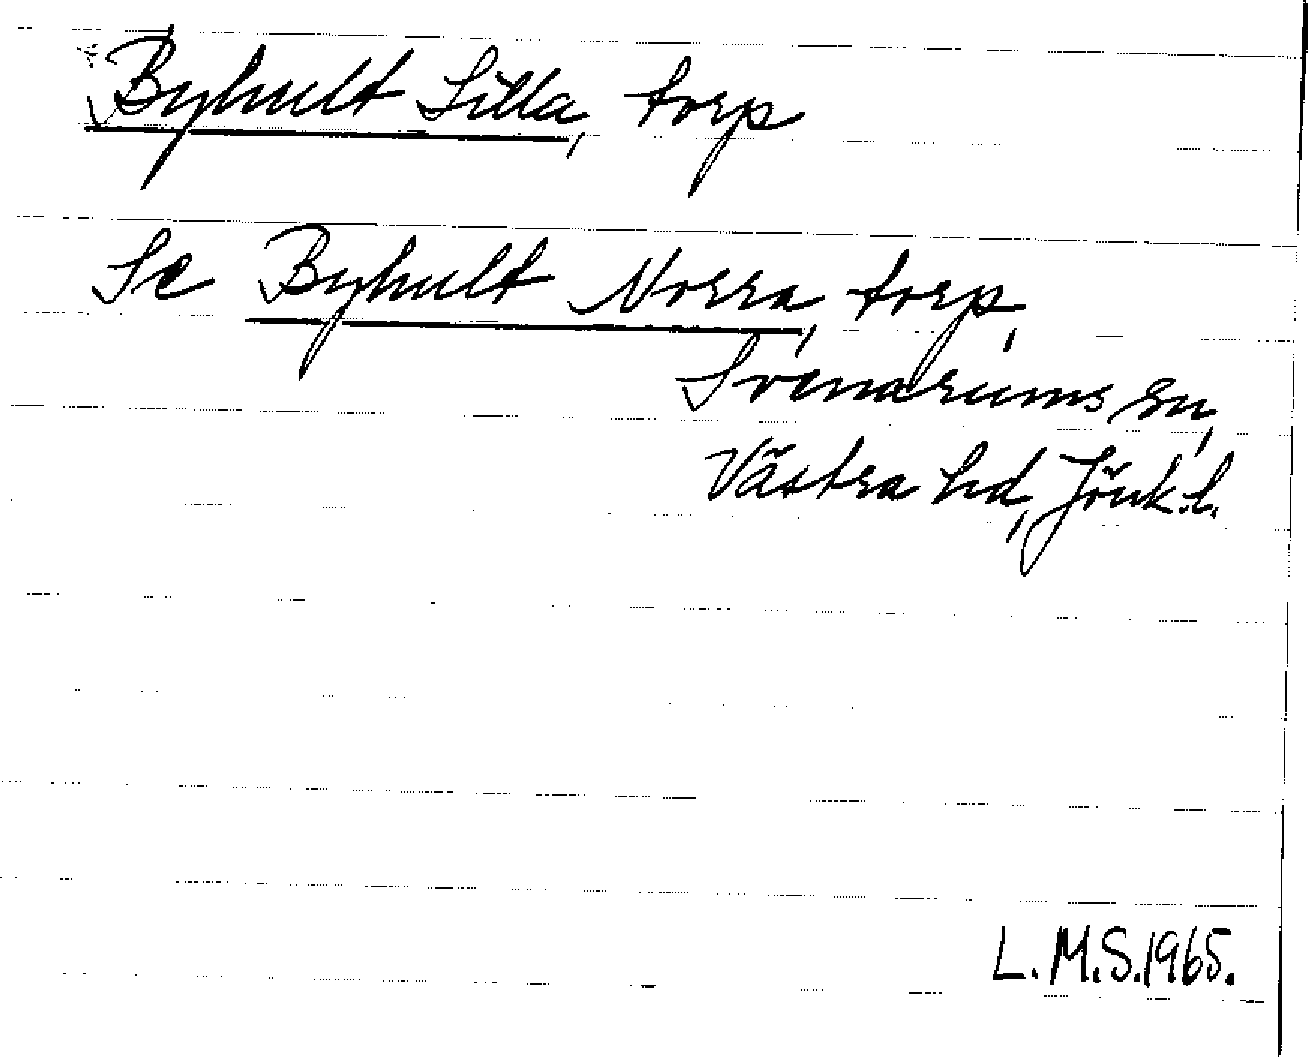 Byhult Lilla, torp
Se Byhult Norra, torp,
Svenarums sn,
Västra hd, Jönk.l.
L.M.S.1965.